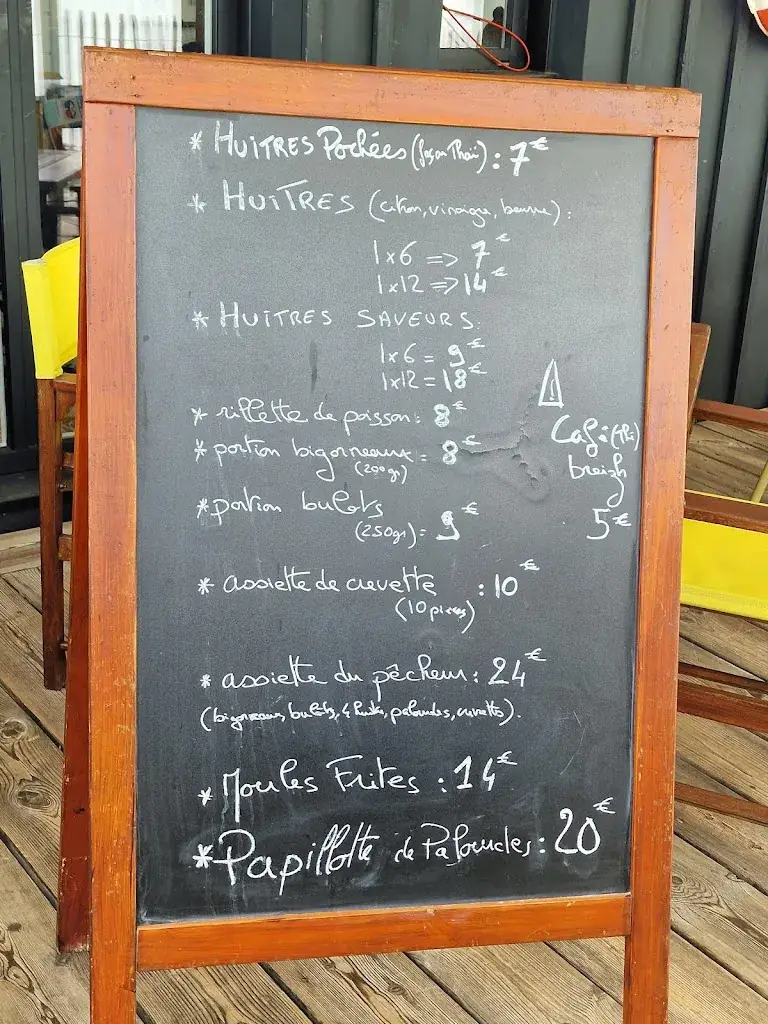 * HUITRES Pochées (façon Thaï) : 7€
* HUITRES (citron, vinaigre, beurre) :
1x6 => 7€
1x12 => 14€
* HUITRES SAVEURS:
1x6 = 9€
1x12 = 18€
* rillette de poisson : 8€
* portion bigorneaux = 8€
(200gr)
* portion bulots
(250gr) = 9€
* assiette de crevette : 10€
(10 pièces)
* assiette du pêcheur : 24€
(bigorneaux, bulots, 4 huitres, palourdes, crevettes).
* Moules Frites : 14€
* Papillotte de Palourdes : 20€
⚠
breizh
5€